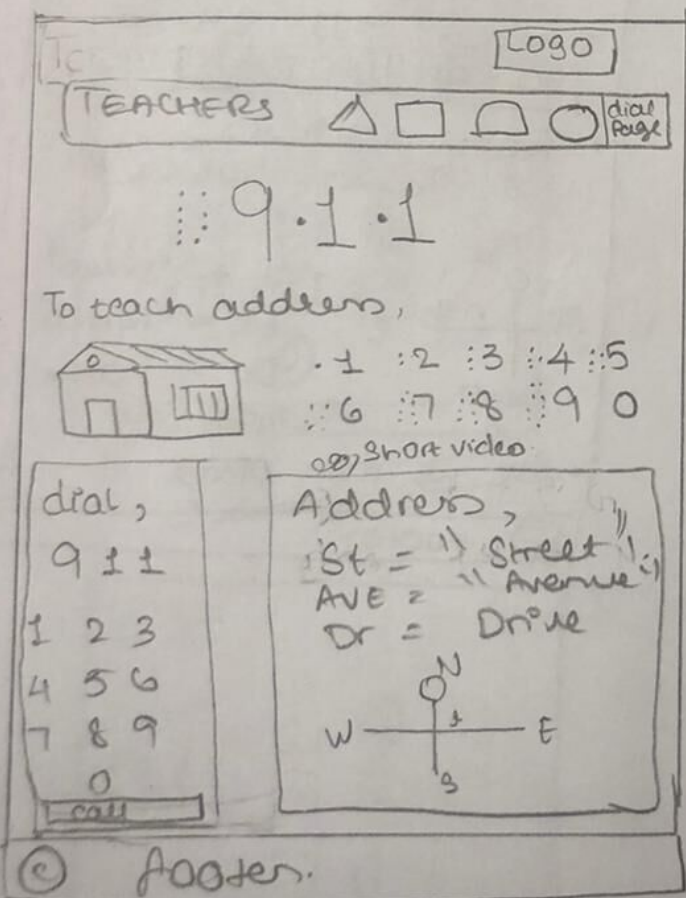 Tc
LOGO
TEACHERS
dial
Page
9.1.1
To teach address,
1 2 3 4 5
6 7 8 9 0
short video
dial,
9 1 1
1 2 3
4 5 6
7 8 9
0
call
Address,
St = "Street"
AVE = "Avenue"
Dr = Drive
N
W E
S
© footer.